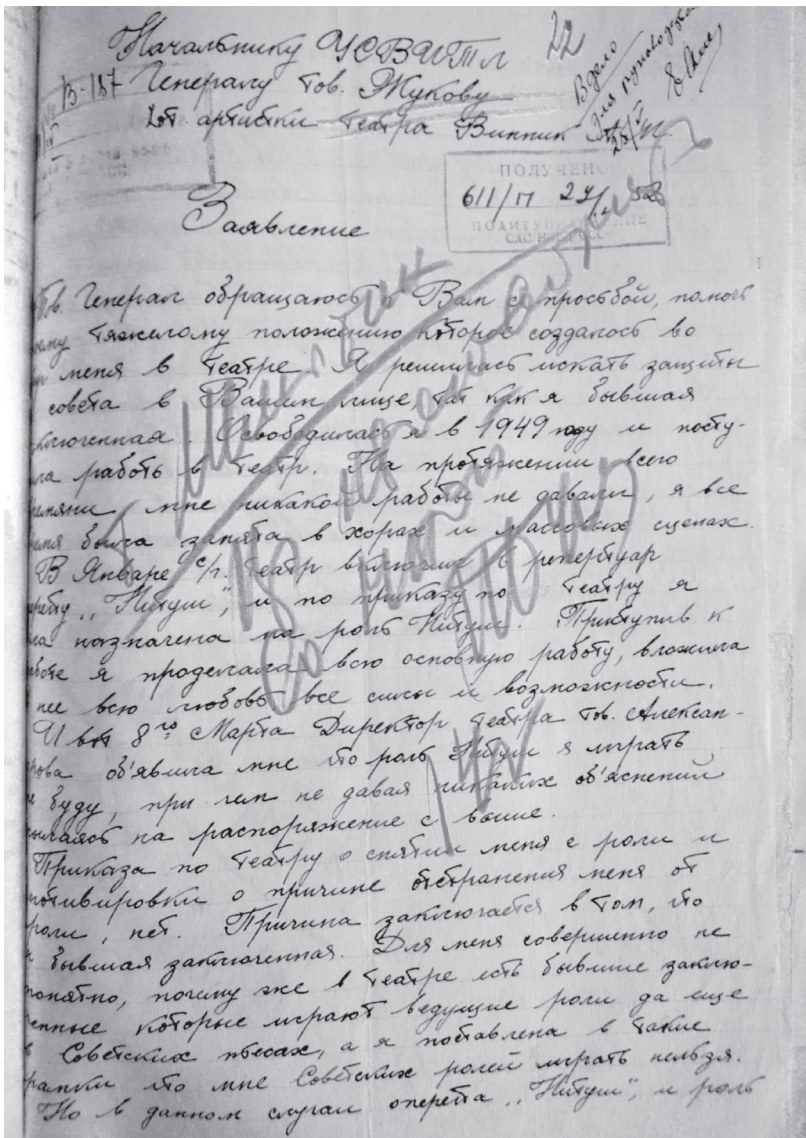 Начальнику УСВИТЛ 22
В-187 Генералу тов. Жукову
от артистки театра Винник
В дело
Для руководства
ПОЛУЧЕНО
611/п 24/ 52
ПОЛИТУПРАВЛЕНИЕ
Заявление
Тов. Генерал обращаюсь к Вам с просьбой, помочь
моему тяжелому положению которое создалось во
меня в театре. Я решилась искать защиты
совета в Вашем лице, так как я бывшая
ключенная. Освободилась я в 1949 году и посту-
ла работь в театр. На протяжении всего
ремяни мне никакой работы не давали, я все
ремя была занята в хорах и массовых сценах.
В Январе с/г. театр включил в репертуар
ретту „Нитуш", и по приказу по театру я
ла назначена на роль Нитуш. Приступив к
аботе я проделала всю основную работу, вложила
нее всю любовь все силы и возможности.
И вот 8го Марта Директор театра тов. Алексан-
рова об'явила мне что роль Нитуш я играть
е буду, при чем не давая никаких об'яснений
сылаясь на распоряжение с выше.
Приказа по театру о снятии меня с роли и
мотивировки о причине отстранения меня от
роли, нет. Причина заключается в том, что
я бывшая заключенная. Для меня совершенно не
понятно, почему же в театре есть бывшие заклю-
ченные которые играют ведущие роли да еще
в Советских пьесах, а я поставлена в такие
рамки что мне Советских ролей играть нельзя.
Но в данном случаи оперетта „Нитуш", и роль